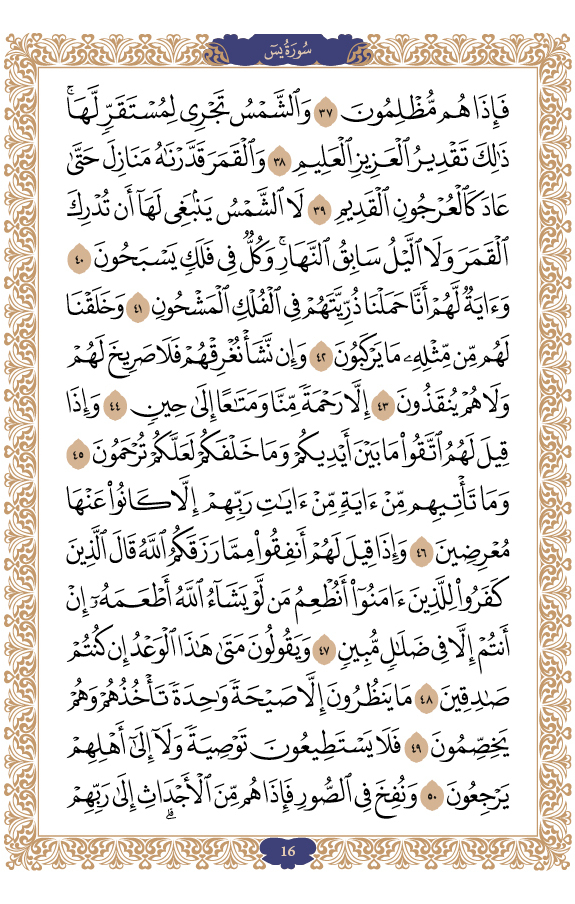 سُورَةُ يسٓ
فَإِذَا هُم مُّظْلِمُونَ ٣٧ وَٱلشَّمْسُ تَجْرِى لِمُسْتَقَرٍّ لَّهَاۚ
ذَٰلِكَ تَقْدِيرُ ٱلْعَزِيزِ ٱلْعَلِيمِ ٣٨ وَٱلْقَمَرَ قَدَّرْنَٰهُ مَنَازِلَ حَتَّىٰ
عَادَ كَٱلْعُرْجُونِ ٱلْقَدِيمِ ٣٩ لَا ٱلشَّمْسُ يَنۢبَغِى لَهَآ أَن تُدْرِكَ
ٱلْقَمَرَ وَلَا ٱلَّيْلُ سَابِقُ ٱلنَّهَارِۚ وَكُلٌّ فِى فَلَكٍ يَسْبَحُونَ ٤٠
وَءَايَةٌ لَّهُمْ أَنَّا حَمَلْنَا ذُرِّيَّتَهُمْ فِى ٱلْفُلْكِ ٱلْمَشْحُونِ ٤١ وَخَلَقْنَا
لَهُم مِّن مِّثْلِهِۦ مَا يَرْكَبُونَ ٤٢ وَإِن نَّشَأْ نُغْرِقْهُمْ فَلَا صَرِيخَ لَهُمْ
وَلَا هُمْ يُنقَذُونَ ٤٣ إِلَّا رَحْمَةً مِّنَّا وَمَتَٰعًا إِلَىٰ حِينٍ ٤٤ وَإِذَا
قِيلَ لَهُمُ ٱتَّقُوا۟ مَا بَيْنَ أَيْدِيكُمْ وَمَا خَلْفَكُمْ لَعَلَّكُمْ تُرْحَمُونَ ٤٥
وَمَا تَأْتِيهِم مِّنْ ءَايَةٍ مِّنْ ءَايَٰتِ رَبِّهِمْ إِلَّا كَانُوا۟ عَنْهَا
مُعْرِضِينَ ٤٦ وَإِذَا قِيلَ لَهُمْ أَنفِقُوا۟ مِمَّا رَزَقَكُمُ ٱللَّهُ قَالَ ٱلَّذِينَ
كَفَرُوا۟ لِلَّذِينَ ءَامَنُوٓا۟ أَنُطْعِمُ مَن لَّوْ يَشَآءُ ٱللَّهُ أَطْعَمَهُۥٓ إِنْ
أَنتُمْ إِلَّا فِى ضَلَٰلٍ مُّبِينٍ ٤٧ وَيَقُولُونَ مَتَىٰ هَٰذَا ٱلْوَعْدُ إِن كُنتُمْ
صَٰدِقِينَ ٤٨ مَا يَنظُرُونَ إِلَّا صَيْحَةً وَٰحِدَةً تَأْخُذُهُمْ وَهُمْ
يَخِصِّمُونَ ٤٩ فَلَا يَسْتَطِيعُونَ تَوْصِيَةً وَلَآ إِلَىٰٓ أَهْلِهِمْ
يَرْجِعُونَ ٥٠ وَنُفِخَ فِى ٱلصُّورِ فَإِذَا هُم مِّنَ ٱلْأَجْدَاثِ إِلَىٰ رَبِّهِمْ
16